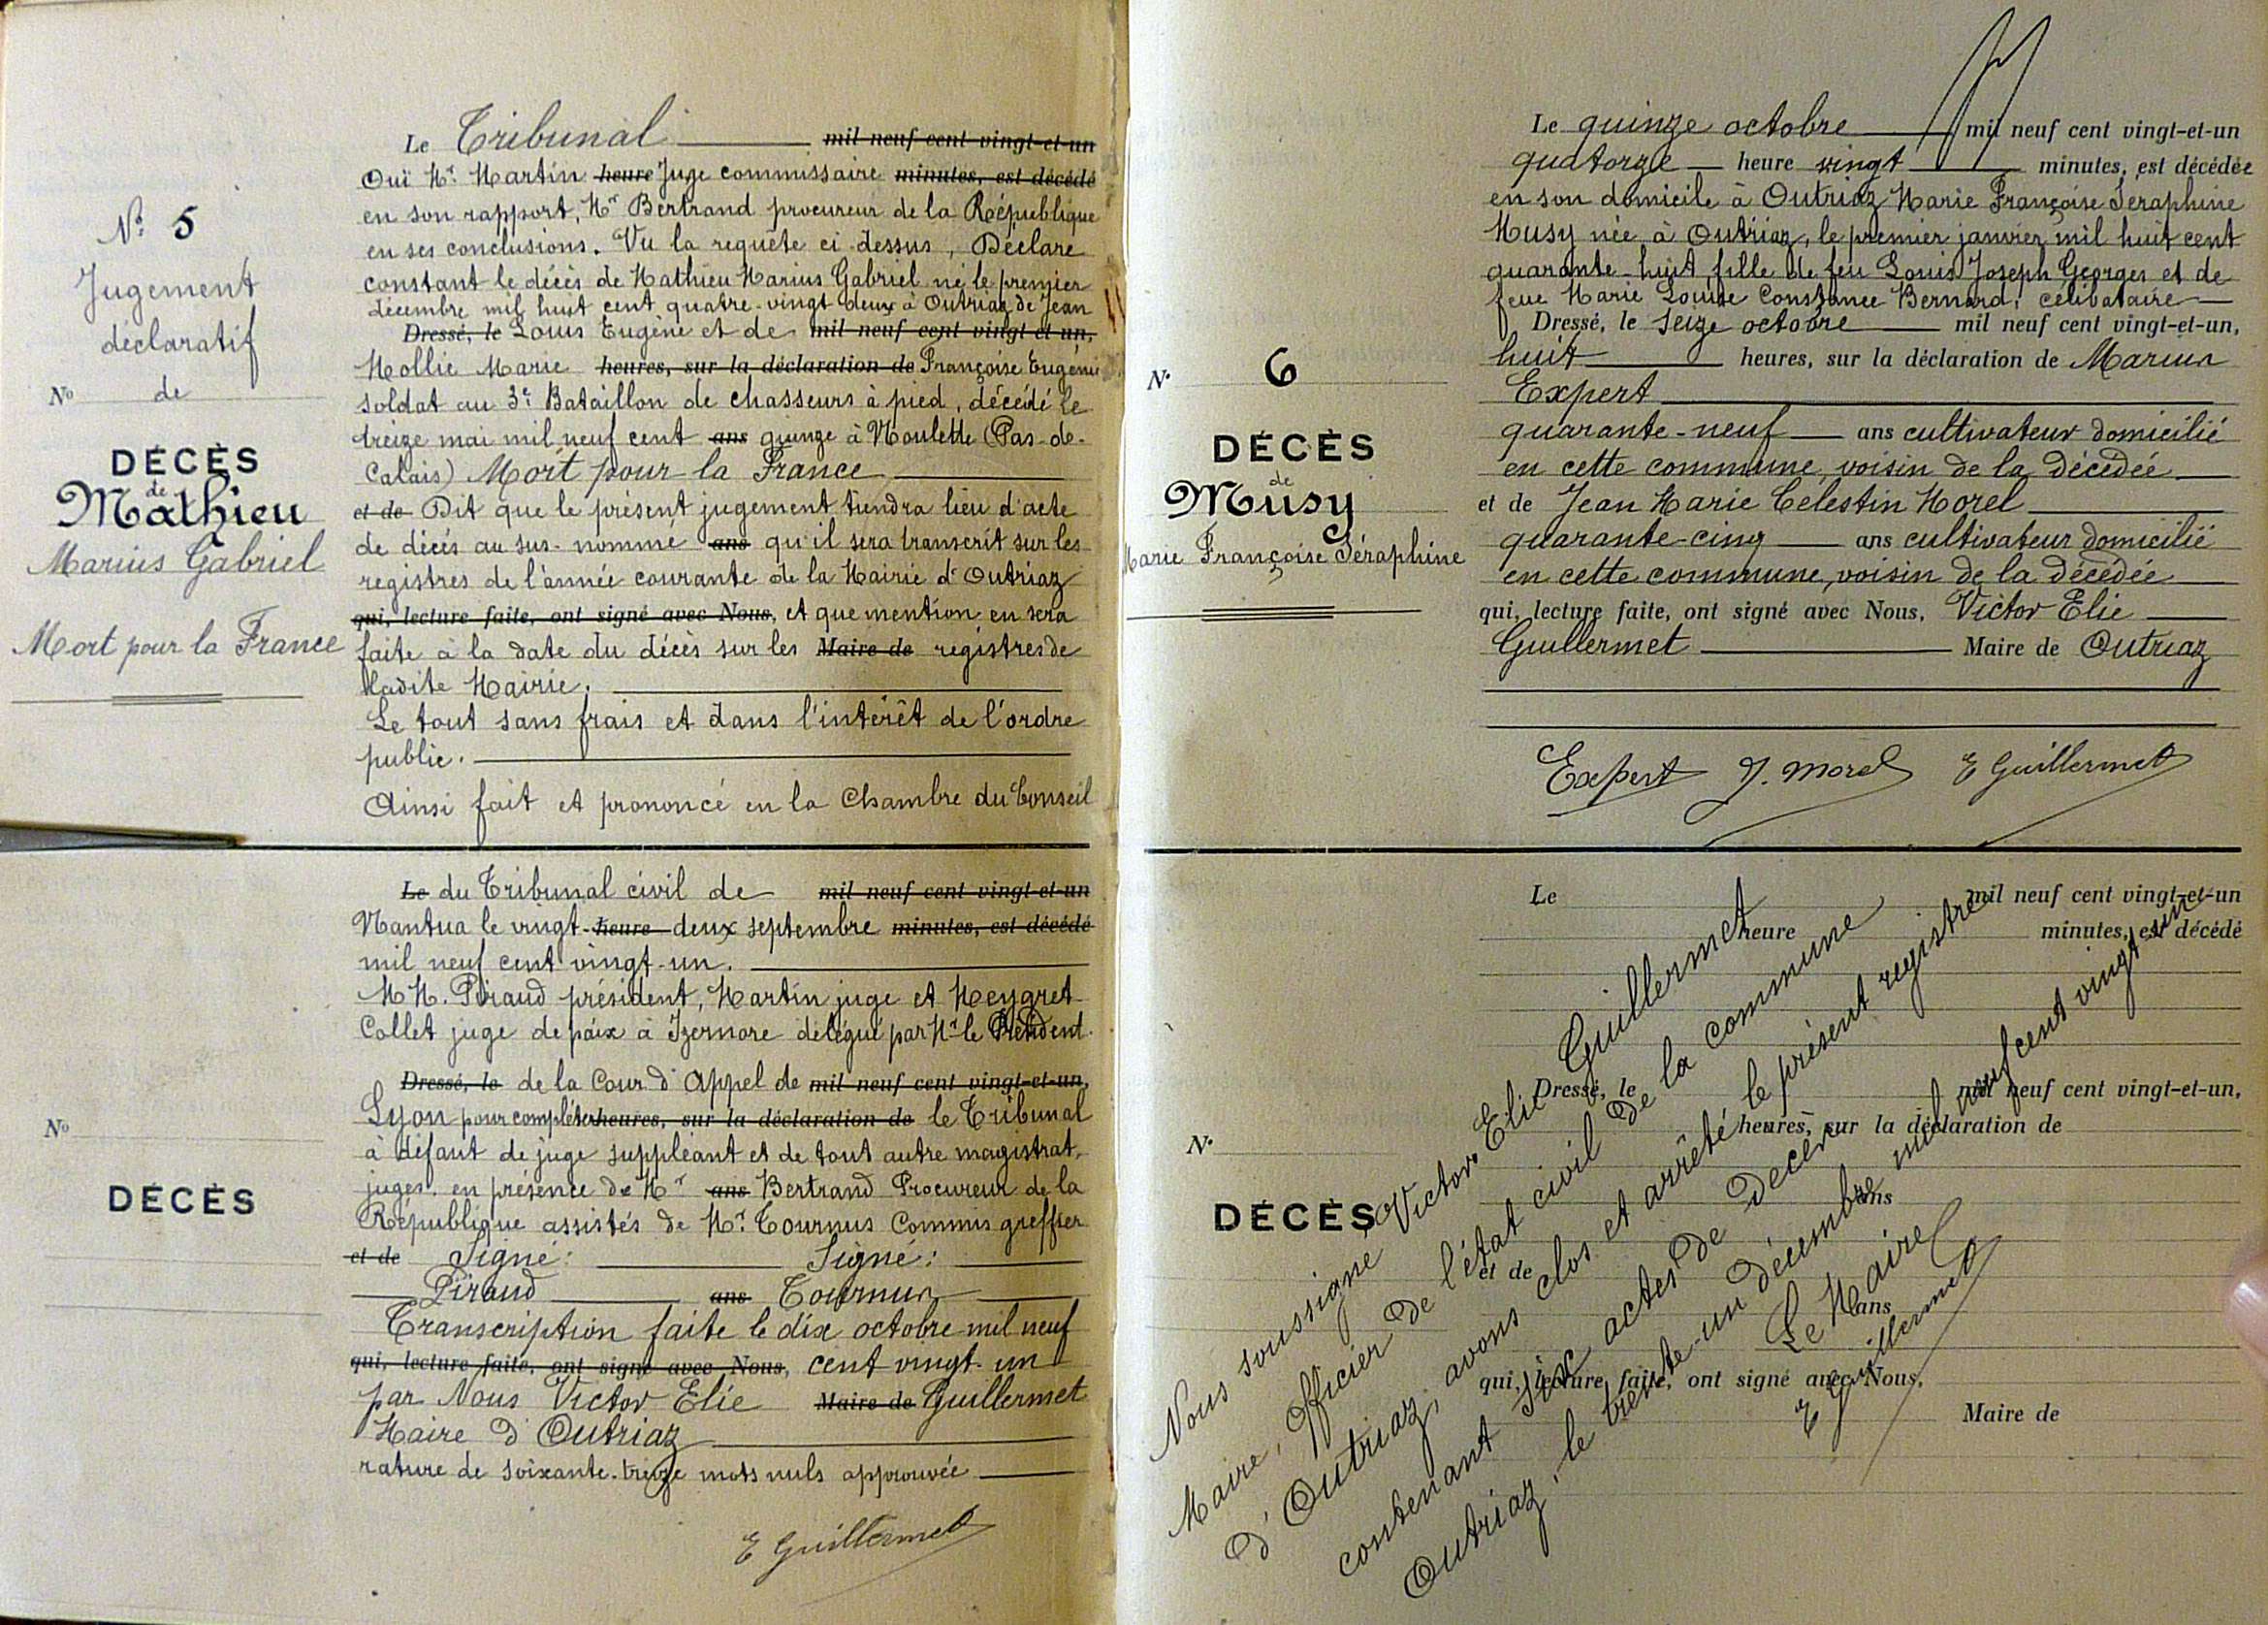 N° 5
Jugement
déclaratif
N° de
DÉCÈS
de
Mathieu
Marius Gabriel
Mort pour la France
Le Tribunal mil neuf cent vingt-et-un
Ouï Mr. Martin heure Juge commissaire minutes, est décédé
en son rapport, Mr Bertrand procureur de la République
en ses conclusions. Vu la requête ci-dessus, Déclare
constant le décès de Mathieu Marius Gabriel né le premier
décembre mil huit cent quatre-vingt deux à Outriaz de Jean
Dressé, le Louis Eugène et de mil neuf cent vingt-et-un,
Mollie Marie heures, sur la déclaration de Françoise Eugénie
soldat au 3e Bataillon de chasseurs à pied, décédé le
treize mai mil neuf cent ans quinze à Noulette (Pas-de-
Calais) Mort pour la France
et de Dit que le présent jugement tiendra lieu d'acte
de décès au sus-nommé ans qu'il sera transcrit sur les
registres de l'année courante de la Mairie d'Outriaz
qui, lecture faite, ont signé avec Nous, et que mention en sera
faite à la date du décès sur les Maire de registres de
ladite Mairie.
Le tout sans frais et dans l'intérêt de l'ordre
public.
Ainsi fait et prononcé en la Chambre du Conseil
N°
DÉCÈS
Le du Tribunal civil de mil neuf cent vingt-et-un
Nantua le vingt-heure deux septembre minutes, est décédé
mil neuf cent vingt-un.
M M. Piraud président, Martin juge et Meygret-
Collet juge de paix à Izernore délégué par Mr le Président
Dressé, le de la Cour d'Appel de mil neuf cent vingt-et-un,
Lyon pour compléter heures, sur la déclaration de le Tribunal
à défaut de juge suppléant et de tout autre magistrat,
juges. en présence de Mr ans Bertrand Procureur de la
République assistés de Mr. Tournus Commis greffier
et de Signé: Signé:
Piraud ans Tournus
Transcription faite le dix octobre mil neuf
qui, lecture faite, ont signé avec Nous, cent vingt-un
par Nous Victor Elie Maire de Guillermet
Maire d'Outriaz
rature de soixante-treize mots nuls approuvée
E Guillermet
N° 6
DÉCÈS
de
Musy
Marie Françoise Séraphine
Le quinze octobre mil neuf cent vingt-et-un
quatorze heure vingt minutes, est décédée
en son domicile à Outriaz Marie Françoise Séraphine
Musy née à Outriaz, le premier janvier mil huit cent
quarante-huit, fille de feu Louis Joseph Georges et de
feue Marie Louise Constance Bernard, célibataire
Dressé, le seize octobre mil neuf cent vingt-et-un,
huit heures, sur la déclaration de Marius
Expert
quarante-neuf ans cultivateur domicilié
en cette commune, voisin de la décédée
et de Jean Marie Célestin Morel
quarante-cinq ans cultivateur domicilié
en cette commune, voisin de la décédée
qui, lecture faite, ont signé avec Nous, Victor Elie
Guillermet Maire de Outriaz
Expert J. Morel E Guillermet
N°
DÉCÈS
Le mil neuf cent vingt-et-un
heure minutes, est décédé
Dressé, le mil neuf cent vingt-et-un,
heures, sur la déclaration de
ans
et de
ans
qui, lecture faite, ont signé avec Nous,
Maire de
Nous soussigné Victor Elie Guillermet
Maire, Officier de l'état civil de la commune
d'Outriaz, avons clos et arrêté le présent registre
contenant six actes de décès
Outriaz, le trente-un décembre mil neuf cent vingt-un
Le Maire
E Guillermet